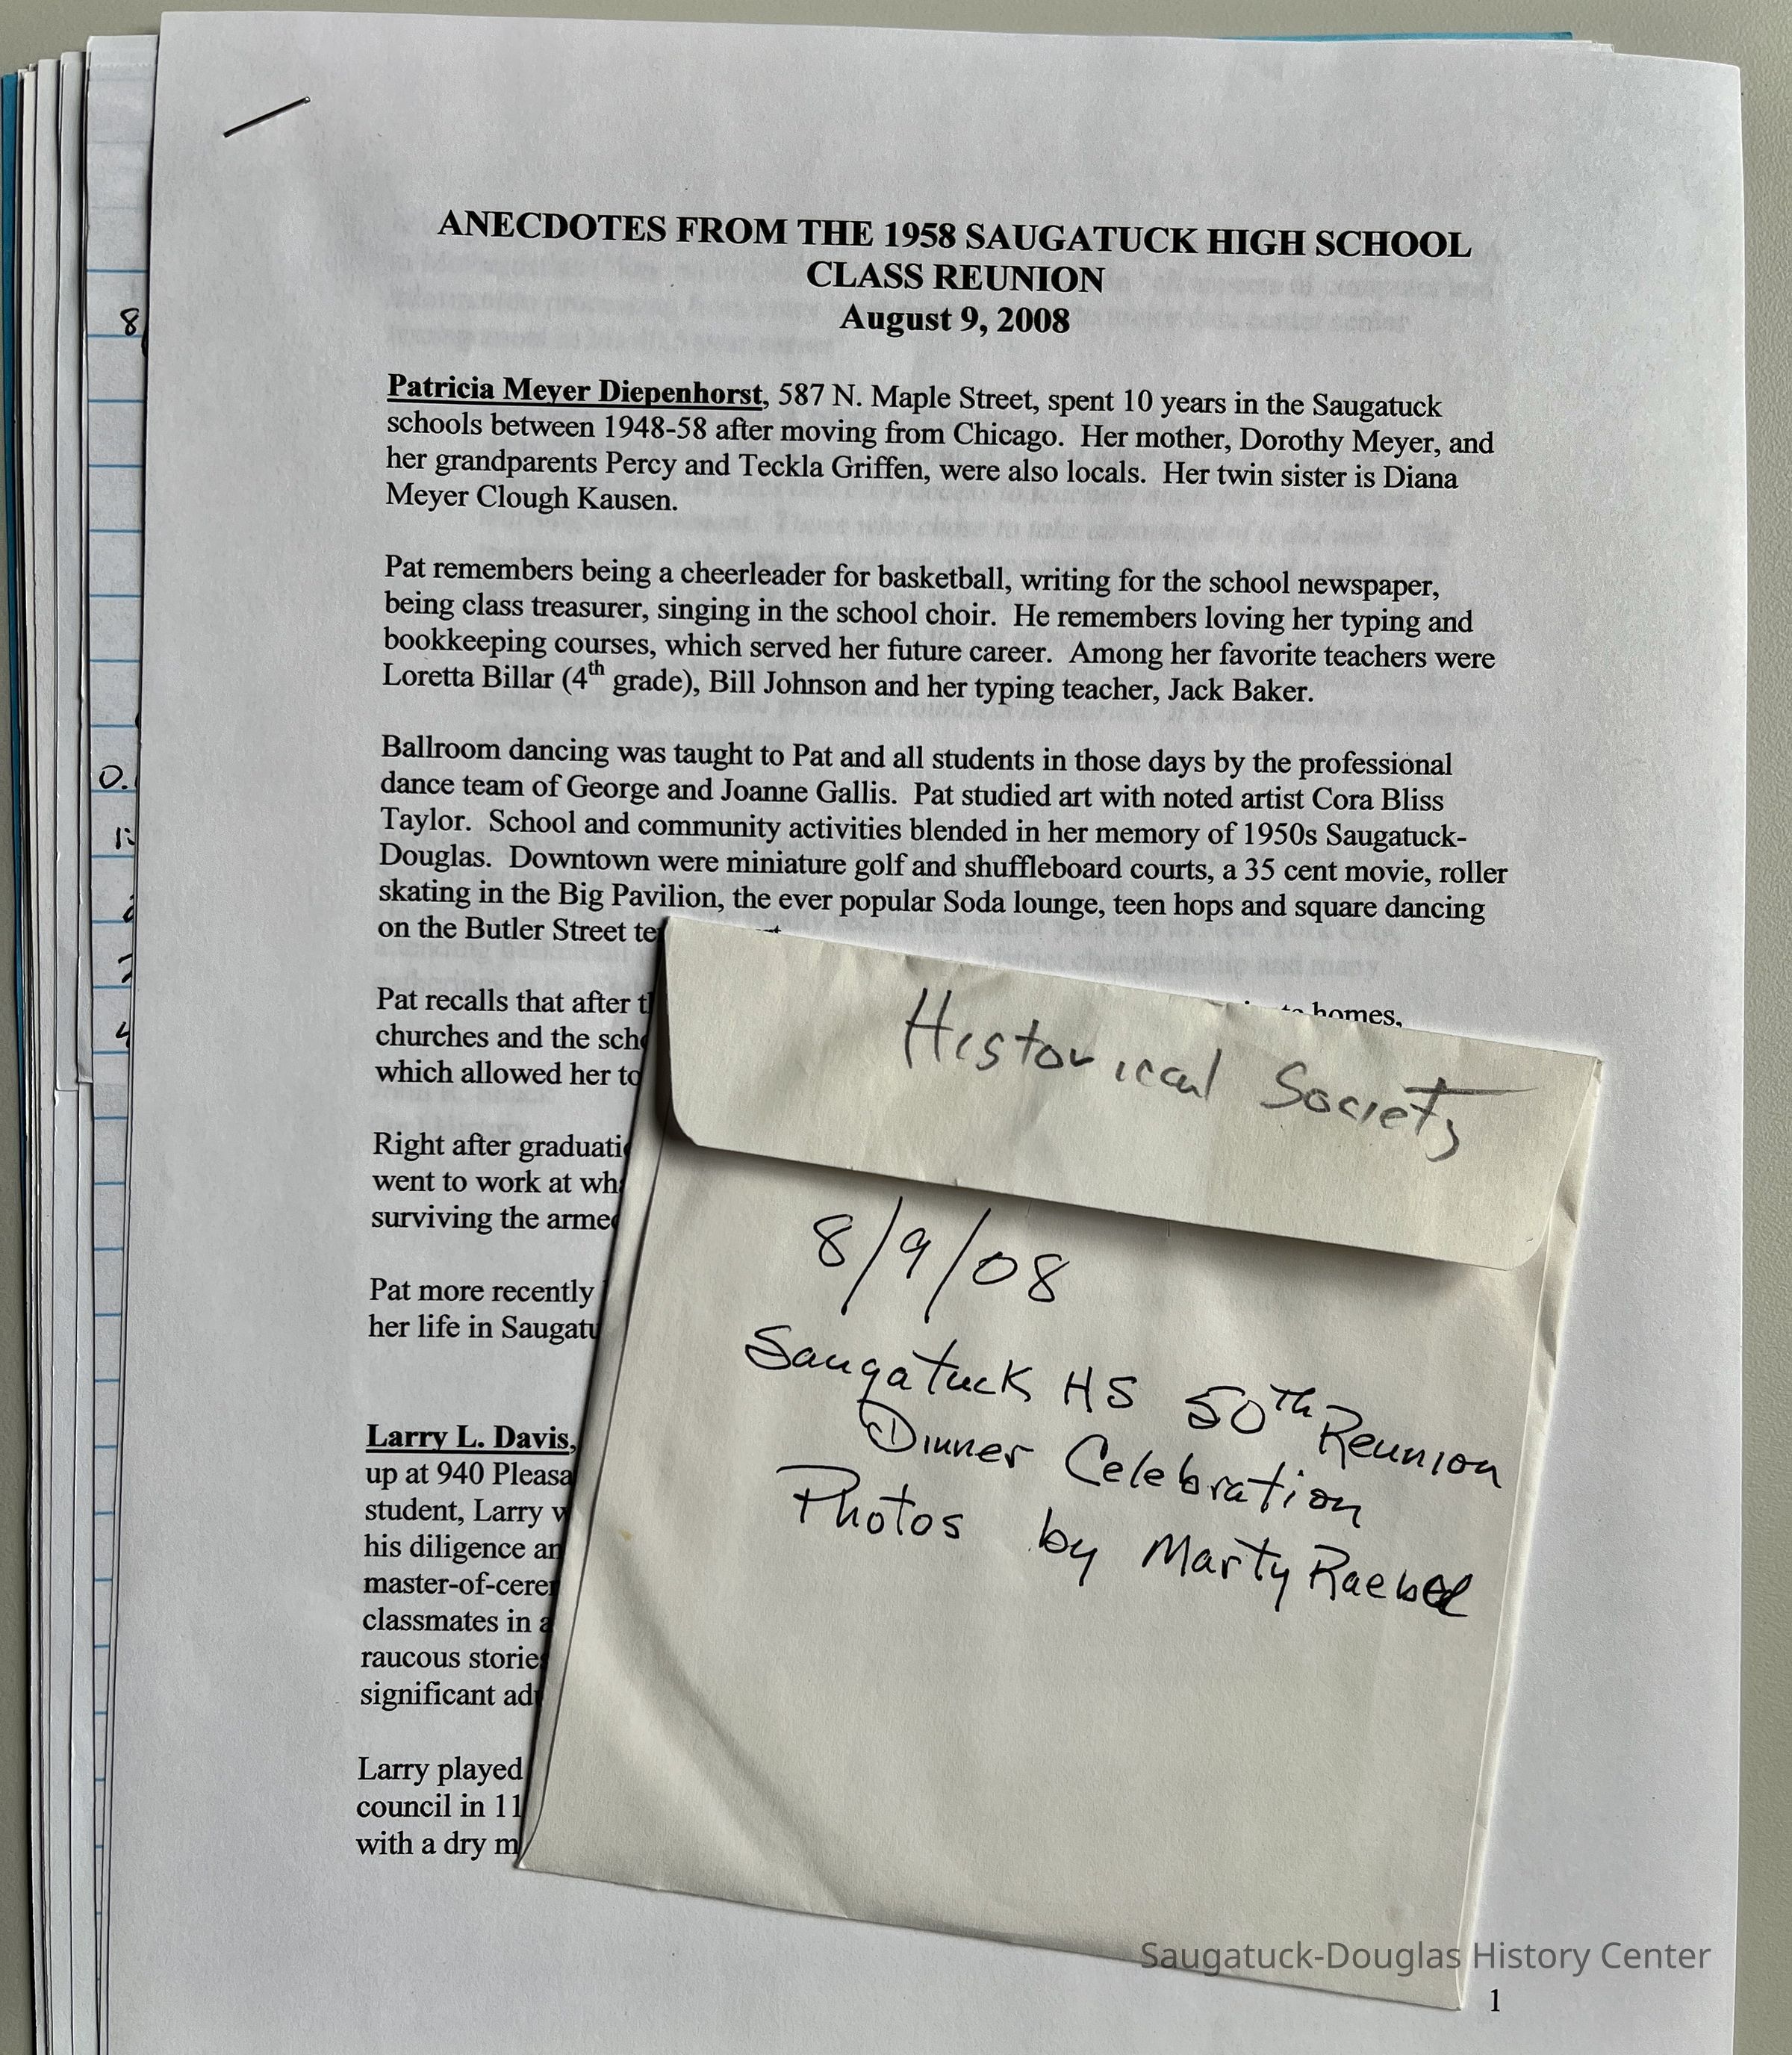 ANECDOTES FROM THE 1958 SAUGATUCK HIGH SCHOOL
CLASS REUNION
August 9, 2008
Patricia Meyer Diepenhorst, 587 N. Maple Street, spent 10 years in the Saugatuck
schools between 1948-58 after moving from Chicago. Her mother, Dorothy Meyer, and
her grandparents Percy and Teckla Griffen, were also locals. Her twin sister is Diana
Meyer Clough Kausen.
Pat remembers being a cheerleader for basketball, writing for the school newspaper,
being class treasurer, singing in the school choir. He remembers loving her typing and
bookkeeping courses, which served her future career. Among her favorite teachers were
Loretta Billar (4th grade), Bill Johnson and her typing teacher, Jack Baker.
Ballroom dancing was taught to Pat and all students in those days by the professional
dance team of George and Joanne Gallis. Pat studied art with noted artist Cora Bliss
Taylor. School and community activities blended in her memory of 1950s Saugatuck-
Douglas. Downtown were miniature golf and shuffleboard courts, a 35 cent movie, roller
skating in the Big Pavilion, the ever popular Soda lounge, teen hops and square dancing
on the Butler Street
Pat recalls that after homes,
churches and the
which allowed her to
Right after
went to work at
surviving the
Pat more recently
her life in
Larry L. Davis,
up at 940
student, Larry
his diligence
classmates in
raucous
significant
Larry played
council in 11
with a dry
Historical Society
8/9/08
Saugatuck HS 50th Reunion
Dinner Celebration
Photos by Marty Raebel
Saugatuck-Douglas History Center
1